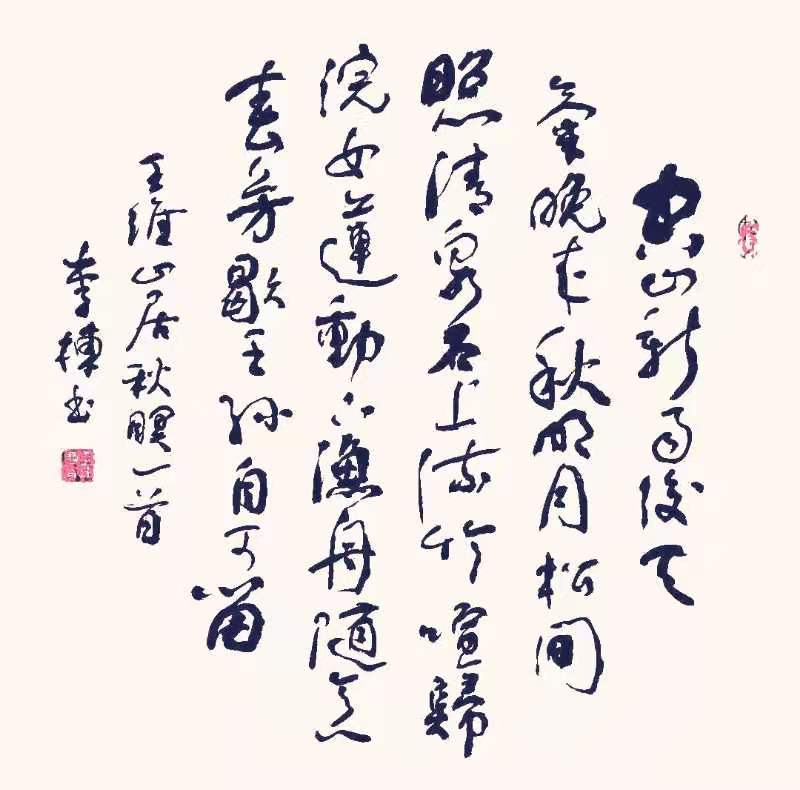 空山新雨後天
氣晚来秋明月松間
照清泉石上流竹喧歸
浣女蓮動下漁舟隨意
春芳歇王孫自可留
王維山居秋暝一首
李書